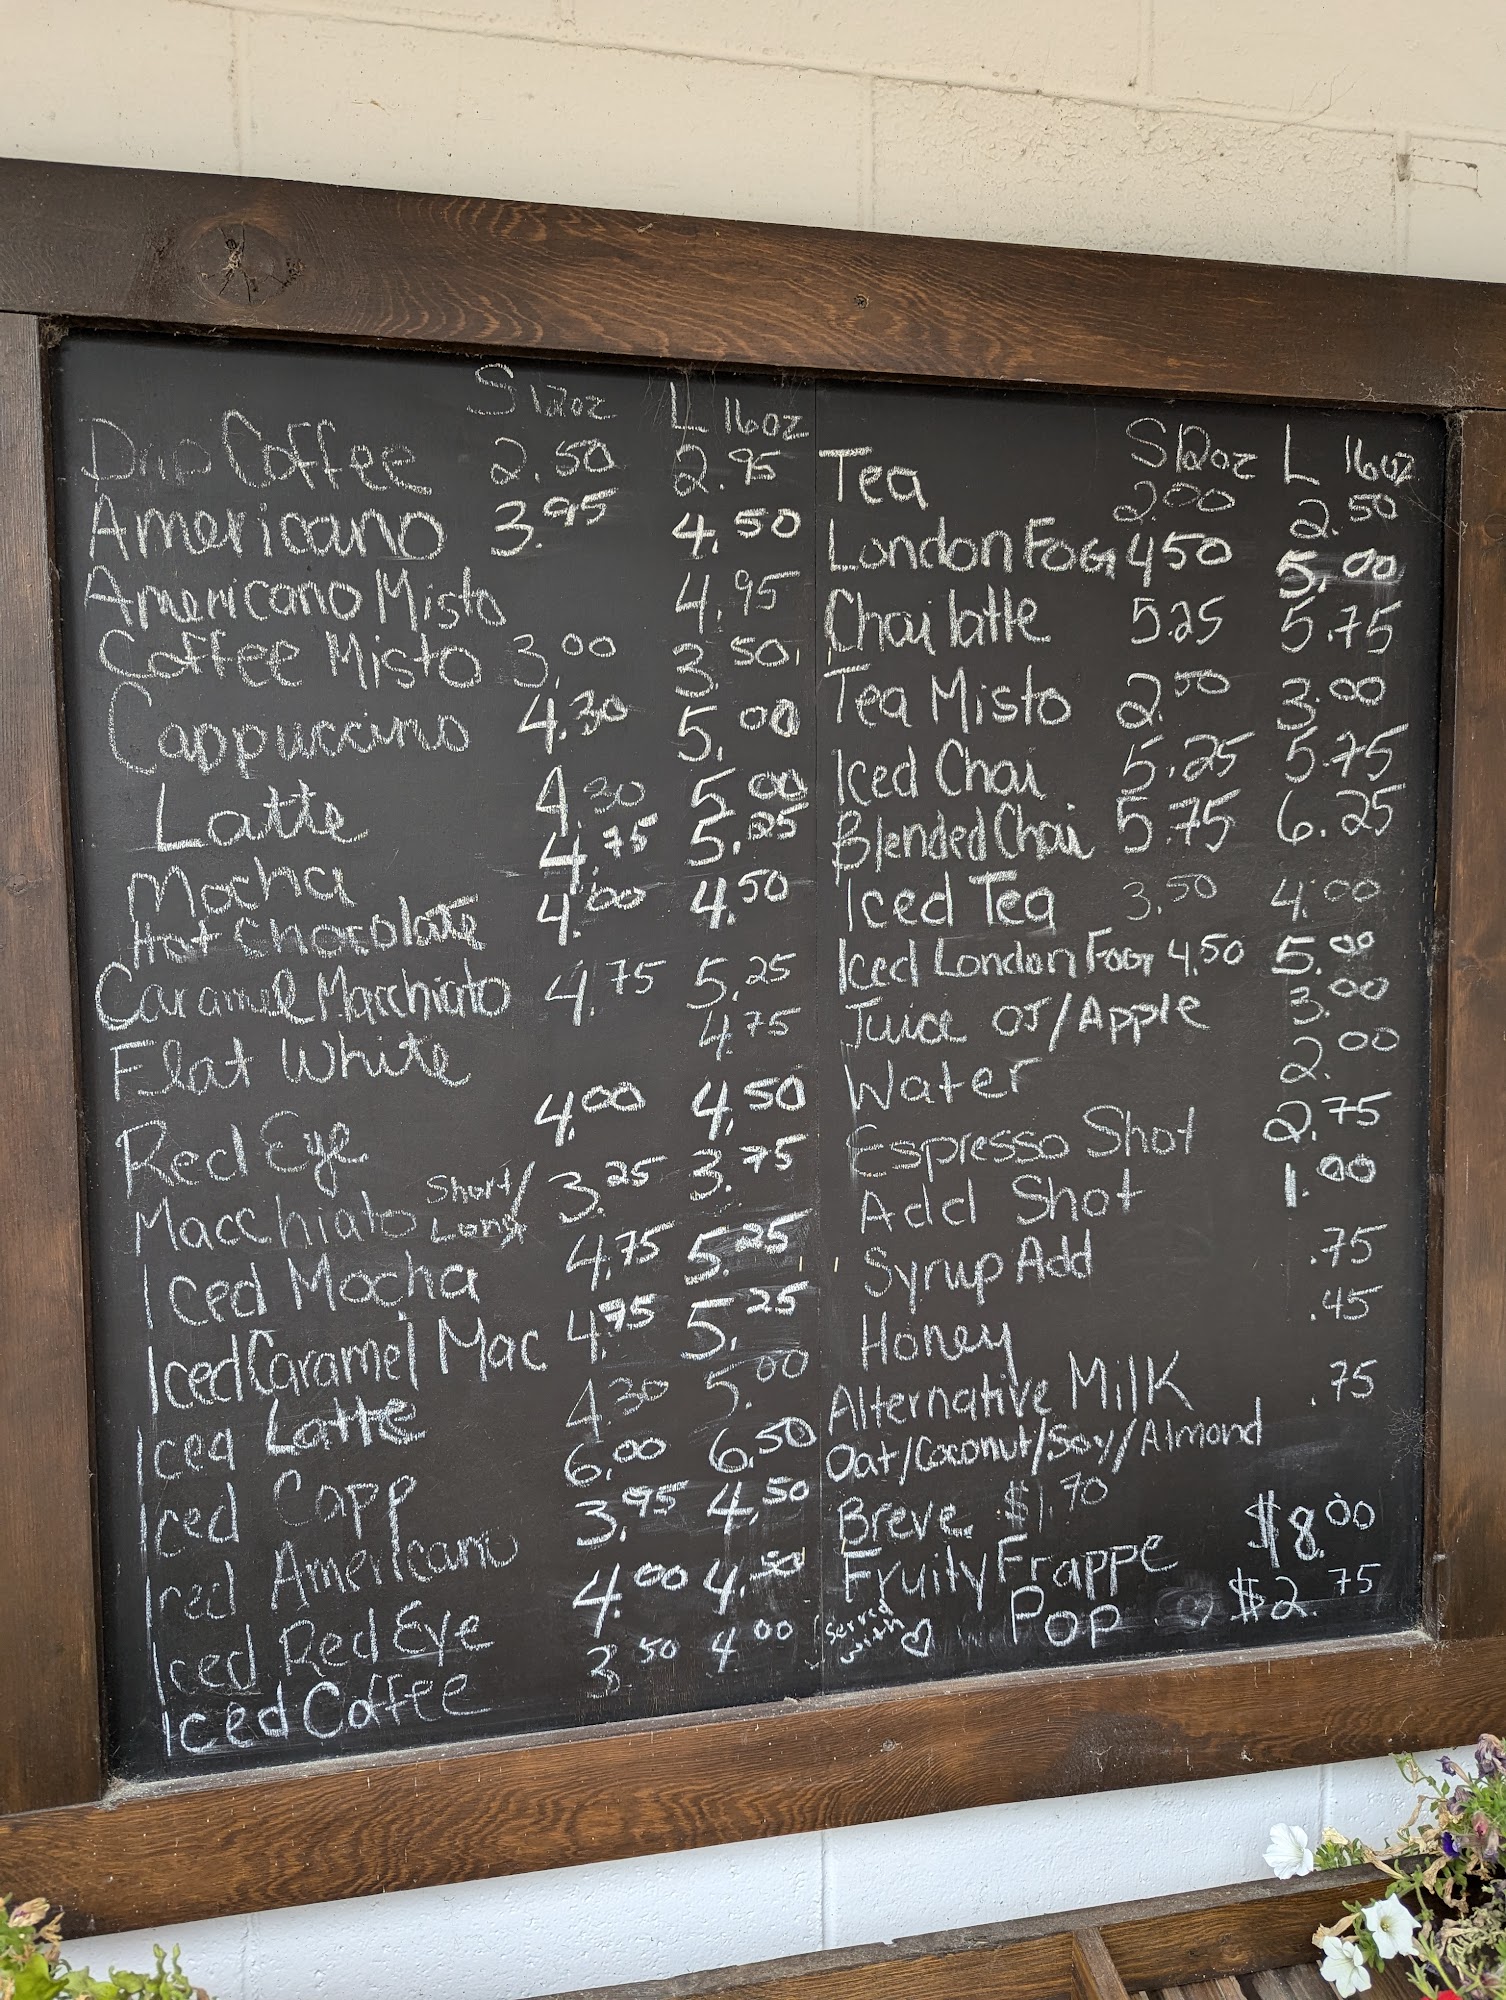 S 12oz L 16oz
Drip Coffee 2.50 2.95
Americano 3.95 4.50
Americano Misto 4.95
Coffee Misto 3.00 3.50
Cappuccino 4.30 5.00
Latte 4.30 5.00
Mocha 4.75 5.25
Hot Chocolate 4.00 4.50
Caramel Macchiato 4.75 5.25
Flat White 4.75
Red Eye 4.00 4.50
Macchiato Short/Long 3.25 3.75
Iced Mocha 4.75 5.25
Iced Caramel Mac 4.75 5.25
Iced Latte 4.30 5.00
Iced Capp 6.00 6.50
Iced Americano 3.95 4.50
Iced Red Eye 4.00 4.50
Iced Coffee 3.50 4.00
S 12oz L 16oz
Tea 2.00 2.50
London FOG 450 5.00
Chai latte 525 5.75
Tea Misto 2.50 3.00
Iced Chai 5.25 5.75
Blended Chai 5.75 6.25
Iced Tea 3.50 4.00
Iced London FOG 4.50 5.00
Juice OJ/Apple 3.00
Water 2.00
Espresso Shot 2.75
Add Shot 1.00
Syrup Add .75
Honey .45
Alternative Milk .75
Oat/Coconut/Soy/Almond
Breve $1.70
Fruity Frappe $8.00
Served with ♡ Pop $2.75